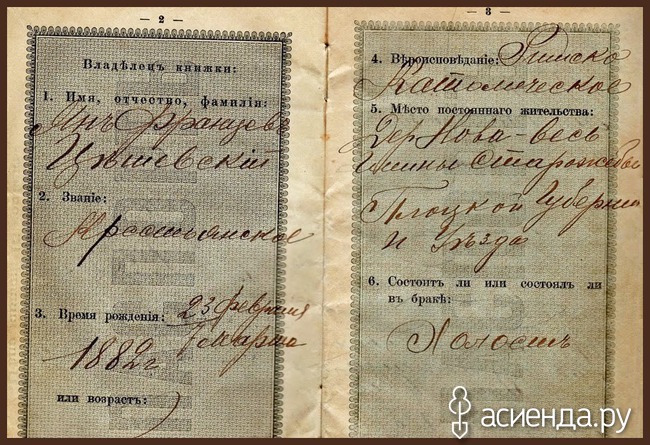 — 2 —
Владѣлецъ книжки:
1. Имя, отчество, фамилія:
Янъ Францовъ
Цѣшевскій
2. Званіе:
Крестьянское
3. Время рожденія: 23 февраля
7 марта
1882 г
или возрастъ:
— 3 —
4. Вѣроисповѣданіе: Римско
Католическое
5. Мѣсто постояннаго жительства:
Дер Нова-весь
Гмины Старожебы
Плоцкой Губерніи
и Уѣзда
6. Состоитъ ли или состоялъ ли
въ бракѣ:
Холостъ
асиенда.ру